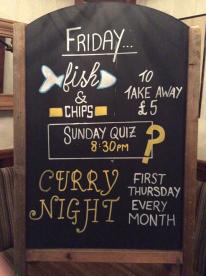 FRIDAY...
fish
&
CHIPS
10
TAKE AWAY
£5
SUNDAY QUIZ
8:30PM
?
CURRY
NIGHT
FIRST
THURSDAY
EVERY
MONTH